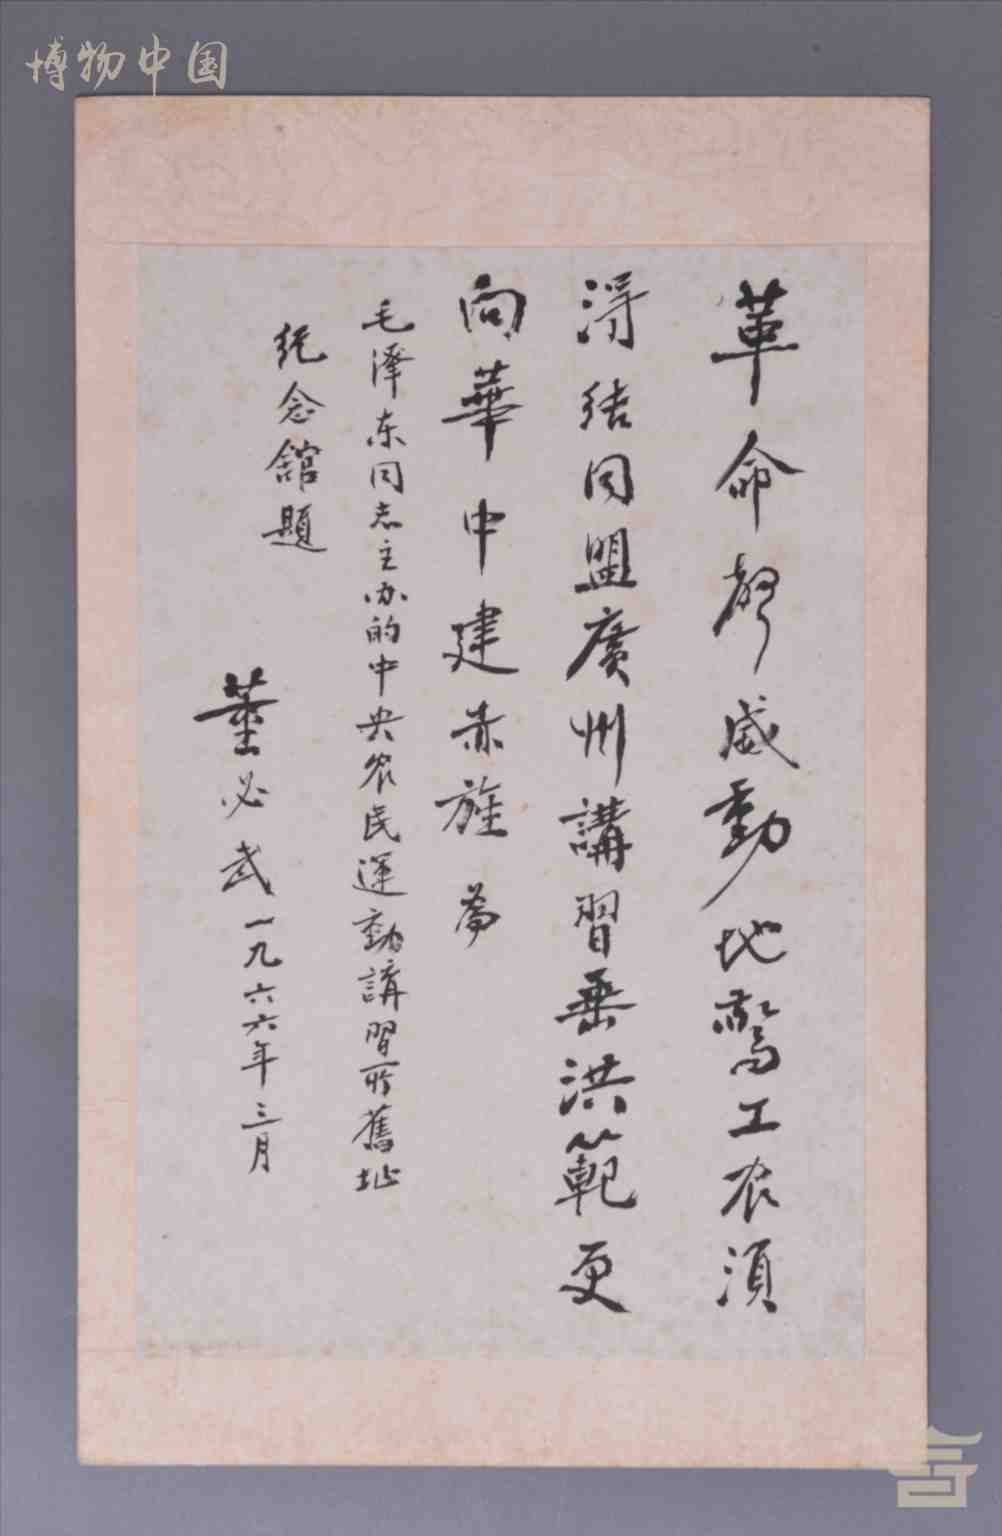 博物中国
革命聲威動地驚工农須
得结同盟廣州講習垂洪範更
向華中建赤旌 為
毛泽东同志主办的中央农民運動講習所舊址
纪念館題
董必武一九六六年三月